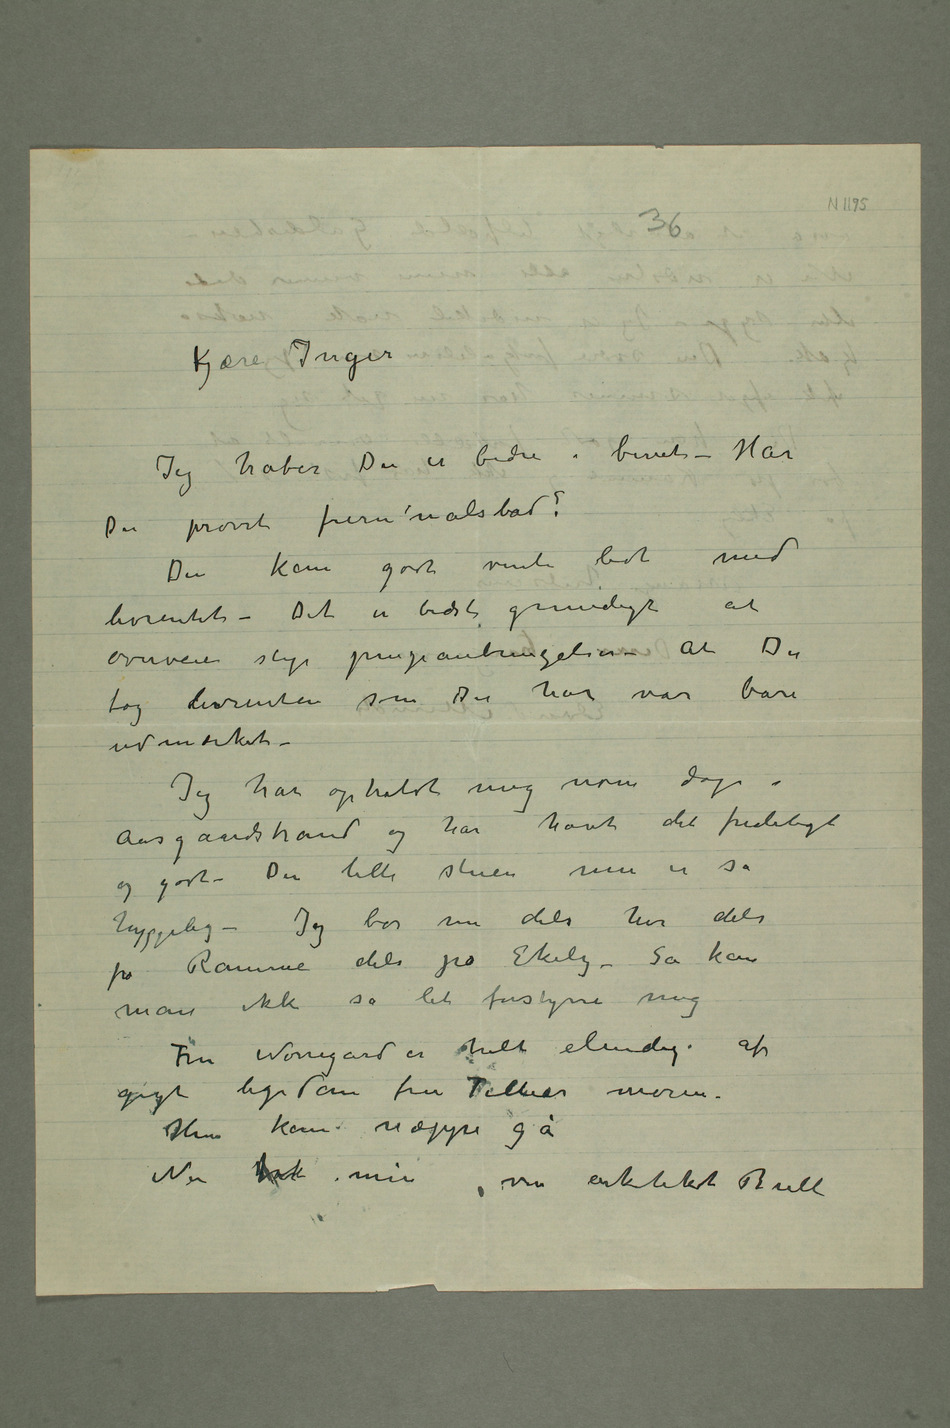 N 1195
36
Kjære Inger
Jeg håber Du er bedre i benet – Har
Du prøvet furunålsbad?
Du kan godt vente lidt med
livrenten – Det er bedst grundigt at
overveie slige pengeanbringelser – At Du
tog livrenten som Du har var bare
udmærket –
Jeg har opholdt mig nogle dage i
Aasgaardstrand og har havt det fredeligt
og godt – Den lille stuen min er så
hyggelig – Jeg bor nu dels her dels
på Ramme dels på Ekely – Så kan
man ikke så let forstyrre mig
Fru Nørregård er helt elendig af
gigt ligesom fru moren –
Hun kan næppe gå
Nu fik min ven arkitekt Bull